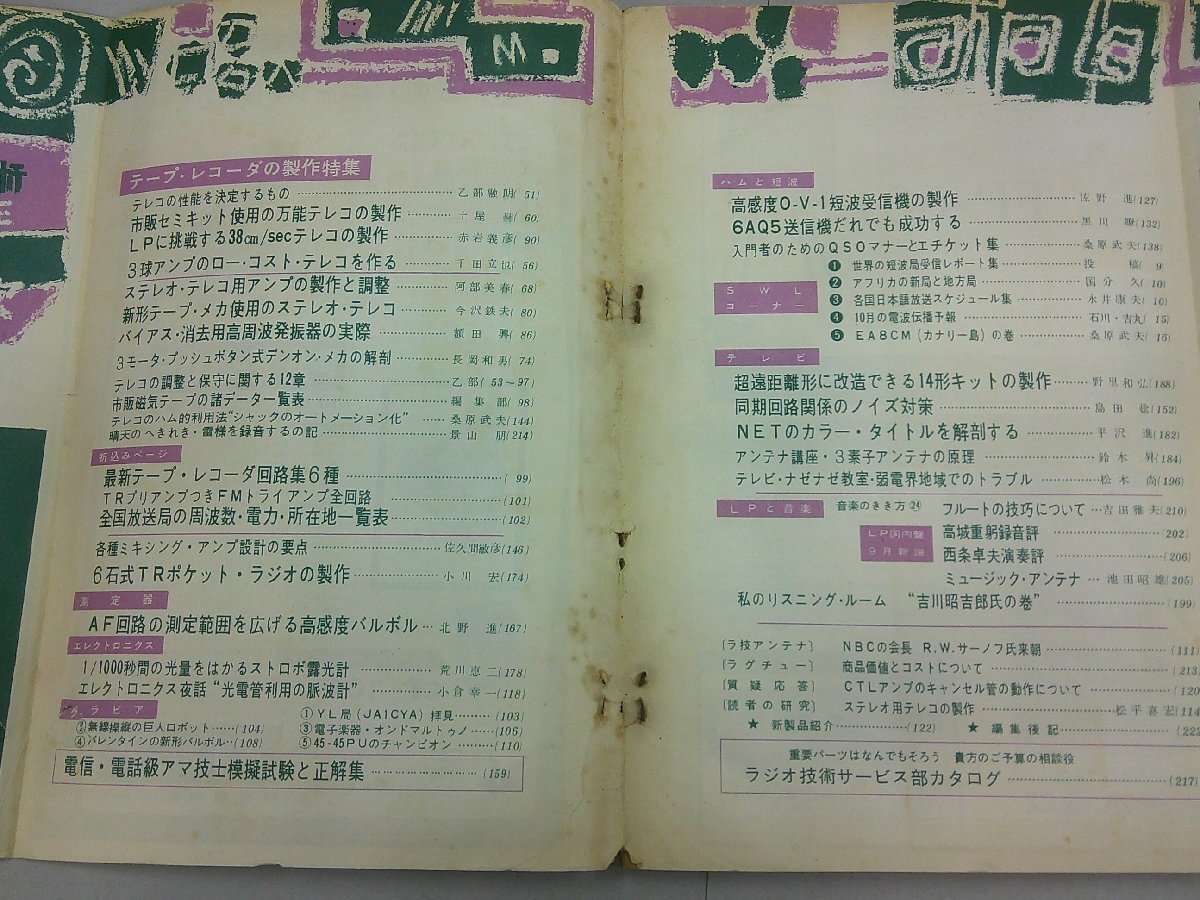 テープ・レコーダの製作特集
テレコの性能を決定するもの 乙部融朗(51)
市販セミキット使用の万能テレコの製作 土屋 赫(60)
LPに挑戦する38cm/secテレコの製作 赤岩義彦(90)
3球アンプのロー・コスト・テレコを作る 千田立也(56)
ステレオ・テレコ用アンプの製作と調整 阿部美春(68)
新形テープ・メカ使用のステレオ・テレコ 今沢鉄夫(80)
バイアス・消去用高周波発振器の実際 額田 興(86)
3モータ・プッシュボタン式デンオン・メカの解剖 長岡和男(74)
テレコの調整と保守に関する12章 乙部(53〜97)
市販磁気テープの諸データ一覧表 編集部(98)
テレコのハム的利用法“シャックのオートメーション化” 桑原武夫(144)
晴天のへきれき・雷様を録音するの記 景山 朋(214)
折込みページ
最新テープ・レコーダ回路集6種 (99)
TRプリアンプつきFMトライアンプ全回路 (101)
全国放送局の周波数・電力・所在地一覧表 (102)
各種ミキシング・アンプ設計の要点 佐久間敏彦(146)
6石式TRポケット・ラジオの製作 小川 宏(174)
測定器
AF回路の測定範囲を広げる高感度バルボル 北野 進(167)
エレクトロニクス
1/1000秒間の光量をはかるストロボ露光計 荒川恵二(178)
エレクトロニクス夜話“光電管利用の脈波計” 小倉幸一(118)
グラビア
①YL局(JA1CYA)拝見 (103)
②無線操縦の巨人ロボット (104)
③電子楽器・オンドマルトゥノ (106)
④バレンタインの新形バルボル (108)
⑤45-45PUのチャンピオン (110)
電信・電話級アマ技士模擬試験と正解集 (159)
ハムと短波
高感度0-V-1短波受信機の製作 佐野 進(127)
6AQ5送信機だれでも成功する 黒川 瞭(132)
入門者のためのQSOマナーとエチケット集 桑原武夫(138)
SWLコーナー
❶ 世界の短波局受信レポート集 投稿(9)
❷ アフリカの新局と地方局 国分 久(10)
❸ 各国日本語放送スケジュール集 永井康夫(10)
❹ 10月の電波伝播予報 石川・吉丸(15)
❺ EA8CM(カナリー島)の巻 桑原武夫(16)
テレビ
超遠距離形に改造できる14形キットの製作 野里和弘(188)
同期回路関係のノイズ対策 島田 聡(152)
NETのカラー・タイトルを解剖する 平沢 進(182)
アンテナ講座・3素子アンテナの原理 鈴木 昇(184)
テレビ・ナゼナゼ教室・弱電界地域でのトラブル 松木 尚(196)
LPと音楽
音楽のきき方㉔ フルートの技巧について 吉田雅夫(210)
LP国内盤9月新譜
高城重躬録音評 (202)
西条卓夫演奏評 (206)
ミュージック・アンテナ 池田昭雄(205)
私のリスニング・ルーム “吉川昭吉郎氏の巻” (199)
〔ラ技アンテナ〕 NBCの会長 R.W.サーノフ氏来朝 (111)
〔ラグチュー〕 商品価値とコストについて (213)
〔質疑応答〕 CTLアンプのキャンセル管の動作について (120)
〔読者の研究〕 ステレオ用テレコの製作 松平喜宏(114)
★ 新製品紹介 (122) ★ 編集後記 (222)
重要パーツはなんでもそろう 貴方のご予算の相談役
ラジオ技術サービス部カタログ (217)